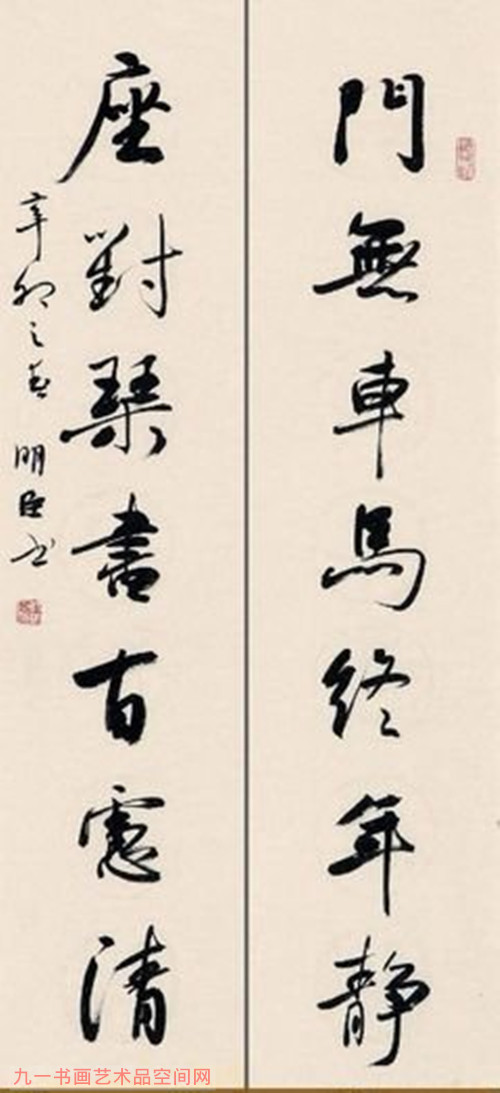 門無車馬終年靜
座對琴書百慮清
辛卯之春 明臣书
九一书画艺术品空间网